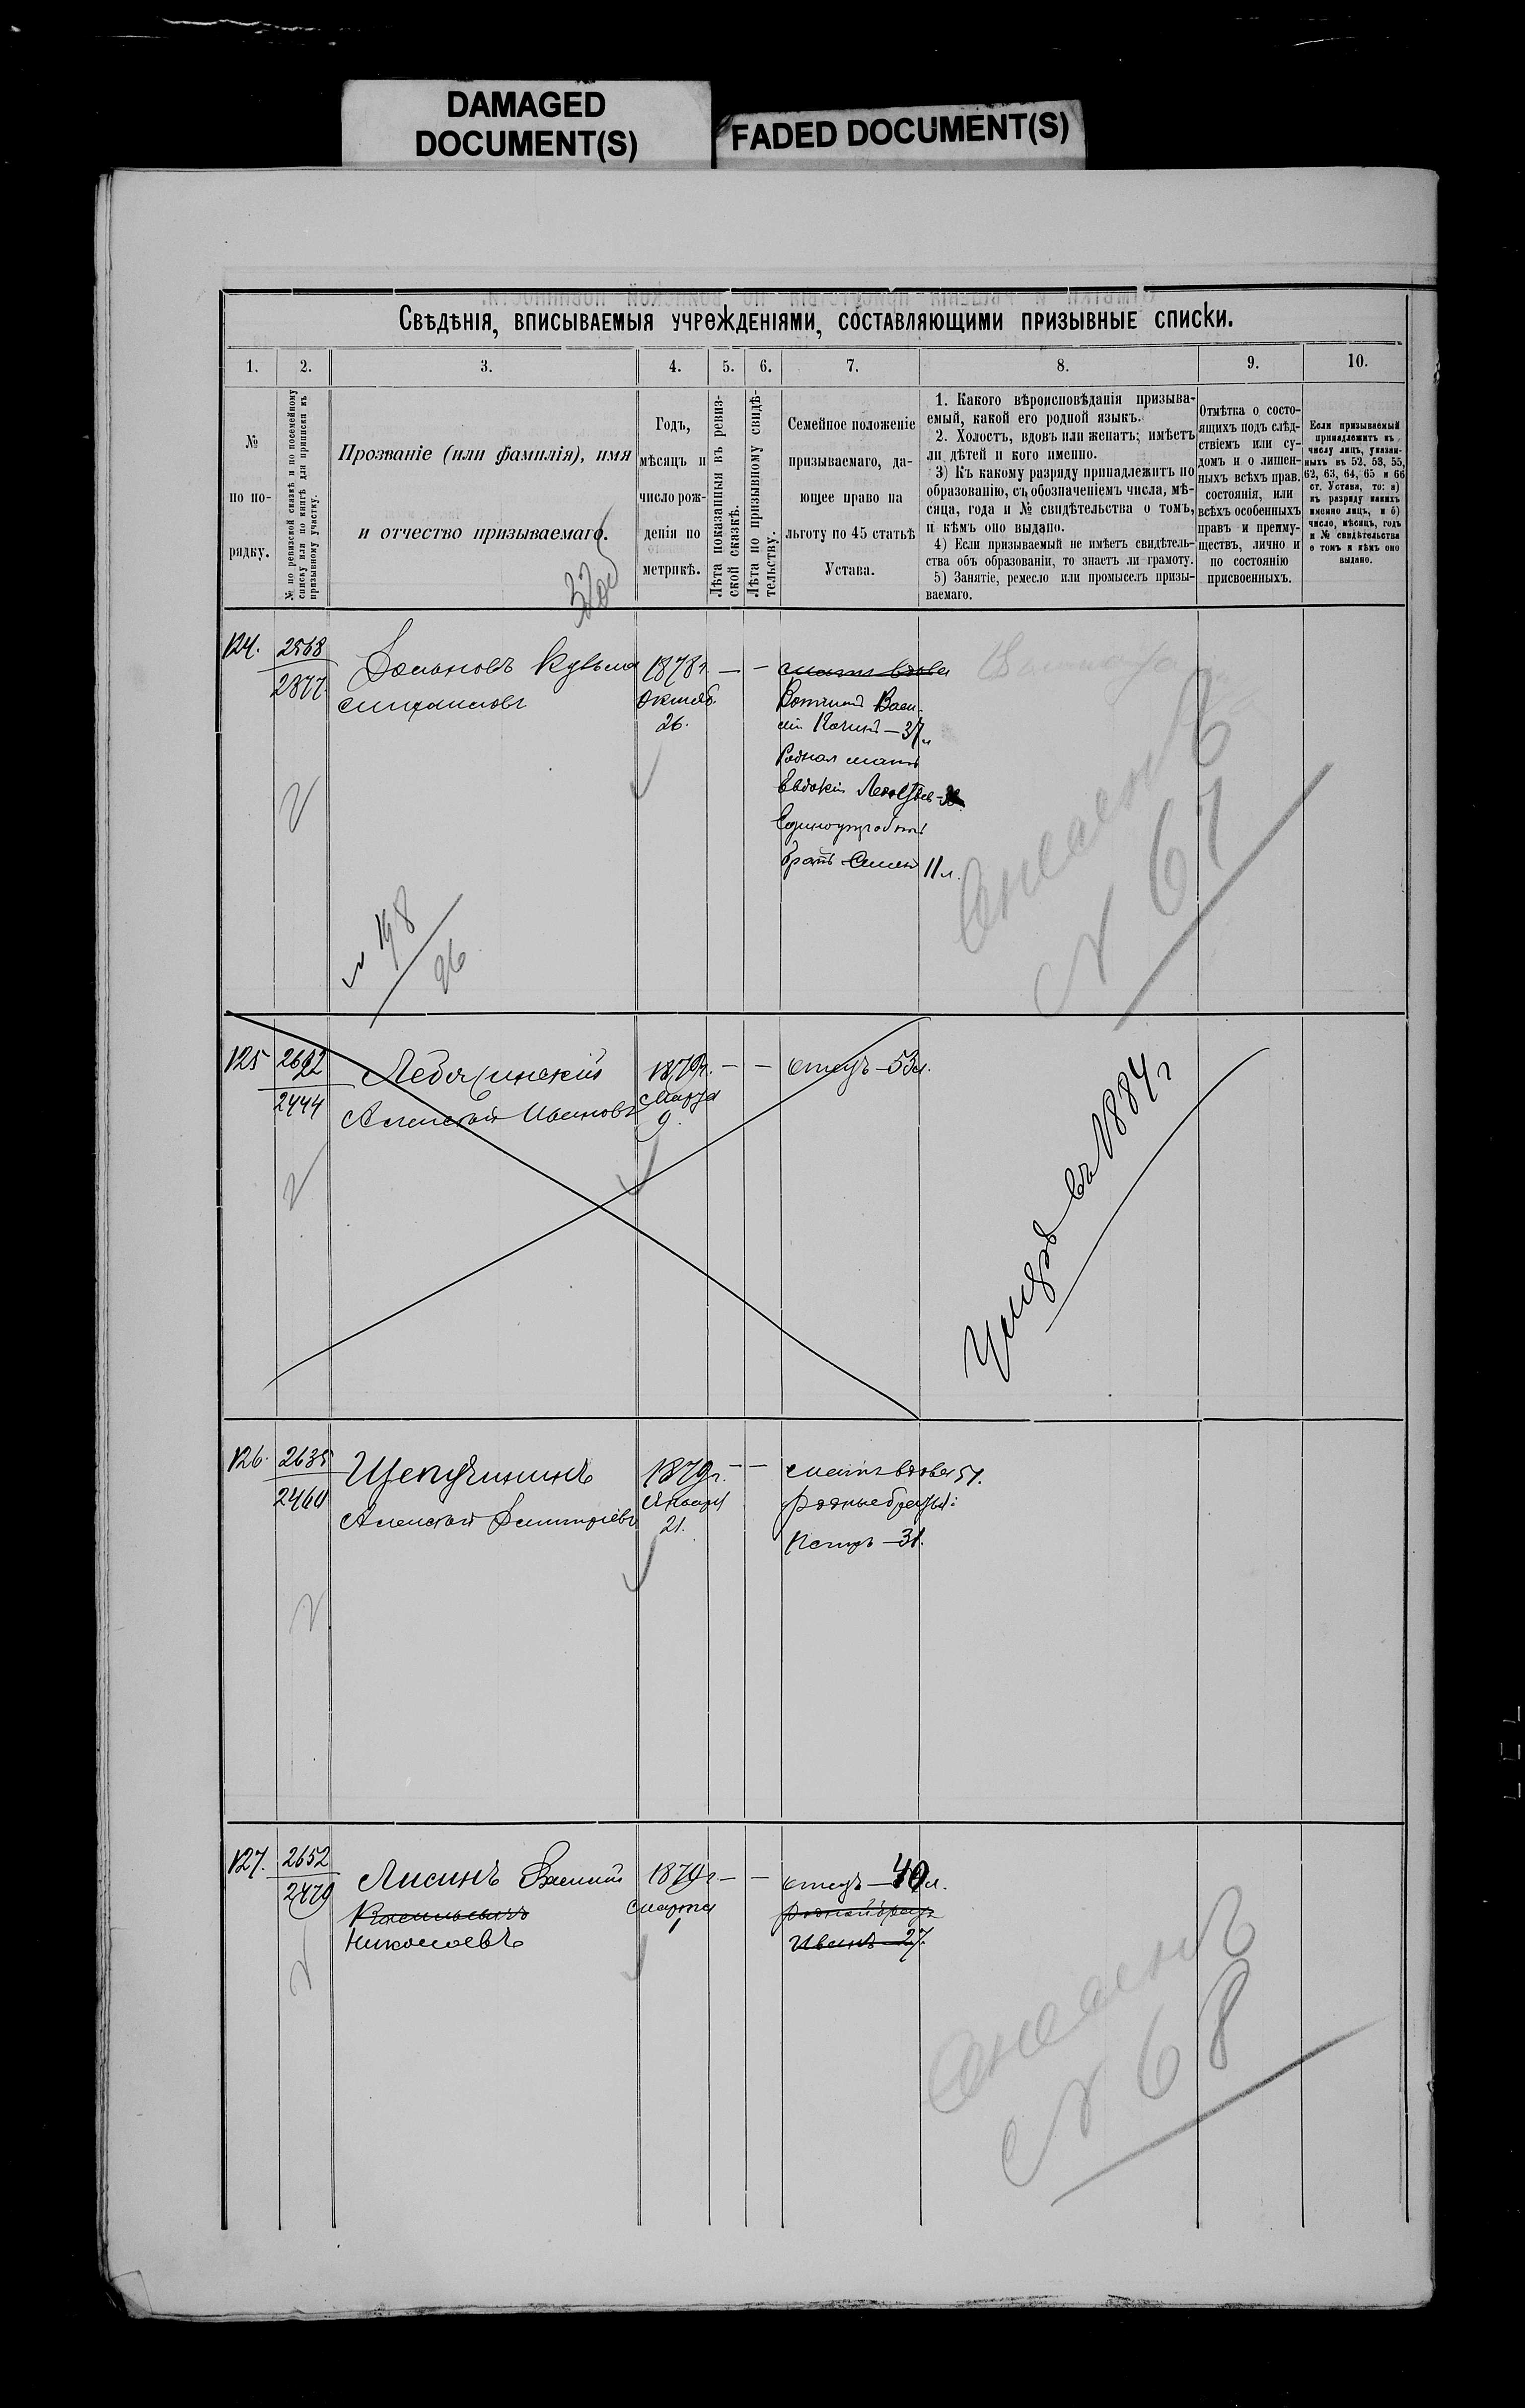 DAMAGED
DOCUMENT(S)
FADED DOCUMENT(S)
Свѣдѣнія, вписываемыя учрежденіями, составляющими призывные списки.
1. 2. 3. 4. 5. 6. 7. 8. 9. 10.
№
по по-
рядку.
№ по ревизской сказкѣ и по посемейному
списку или по книгѣ для приписки къ
призывному участку.
Прозваніе (или фамилія), имя
и отчество призываемаго.
Годъ,
мѣсяцъ и
число рож-
денія по
метрикѣ.
Лѣта показанныя въ ревиз-
ской сказкѣ.
Лѣта по призывному свидѣ-
тельству.
Семейное положеніе
призываемаго, да-
ющее право на
льготу по 45 статьѣ
Устава.
1. Какого вѣроисповѣданія призыва-
емый, какой его родной языкъ.
2. Холостъ, вдовъ или женатъ; имѣетъ
ли дѣтей и кого именно.
3) Къ какому разряду принадлежитъ по
образованію, съ обозначеніемъ числа, мѣ-
сяца, года и № свидѣтельства о томъ,
и кѣмъ оно выдано.
4) Если призываемый не имѣетъ свидѣтель-
ства объ образованіи, то знаетъ ли грамоту.
5) Занятіе, ремесло или промыселъ призы-
ваемаго.
Отмѣтка о состо-
ящихъ подъ слѣд-
ствіемъ или су-
домъ и о лишен-
ныхъ всѣхъ прав.
состоянія, или
всѣхъ особенныхъ
правъ и преиму-
ществъ, лично и
по состоянію
присвоенныхъ.
Если призываемый
принадлежитъ къ
числу лицъ, указан-
ныхъ въ 52, 53, 55,
62, 63, 64, 65 и 66
ст. Устава, то: а)
къ разряду какихъ
именно лицъ, и б)
число, мѣсяцъ, годъ
и № свидѣтельства
о томъ и кѣмъ оно
выдано.
124. 2568
2377
Кузьма
1878 г. — —
Октяб.
26.
мать вдова
Вотчимъ Васи-
лій — 37 л
Родная мать
Евдокія
Единоутробный
братъ Семенъ 11 л.
№ 67
№ 198
26
125 2622
2444
Лебяжинскій
Алексѣй Ивановъ
1879 г. — —
Марта
9.
отецъ — 53 л.
Умеръ въ 1884 г
126. 2635
2460
Щепучининъ
Алексѣй Дмитріевъ
1879 г. — —
Января
21.
мать вдова 51.
родные братья:
Петръ — 31.
127. 2652
2479
Лисинъ Василій
Васильевъ
Николаевъ
1879 г — —
Марта
1
отецъ — 49 л.
родной братъ
Иванъ — 27.
№ 68